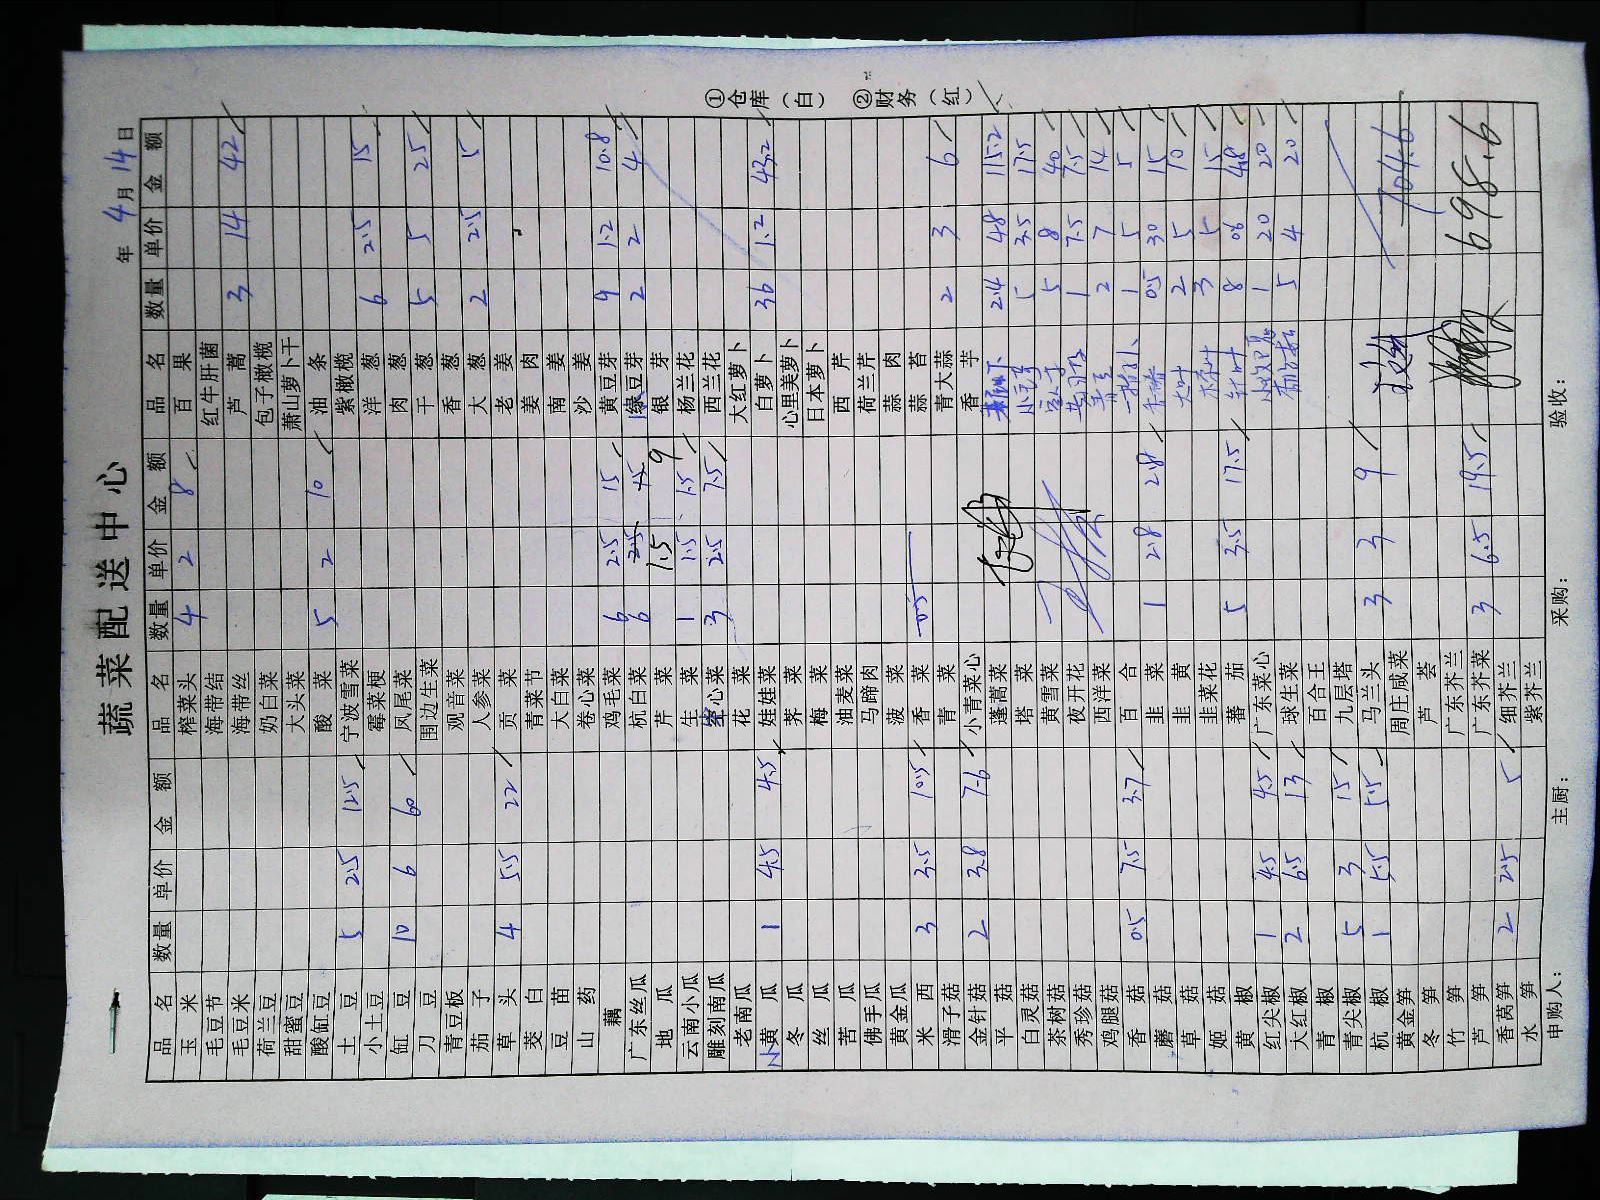 蔬菜配送中心
年 4月14日
品名 数量 单价 金额 品名 数量 单价 金额 品名 数量 单价 金额
玉米 榨菜头 4 2 8 百果
毛豆节 海带结 红牛肝菌
毛豆米 海带丝 芦蒿 3 14 42
荷兰豆 奶白菜 包子橄榄
甜蜜豆 大头菜 萧山萝卜干
酸缸豆 酸菜 5 2 10 油条
土豆 5 2.5 12.5 宁波雪菜 紫橄榄
小土豆 霉菜梗 洋葱 6 2.5 15
缸豆 10 6 60 凤尾菜 肉葱
刀豆 围边生菜 干葱 5 5 25
青豆板 观音菜 香葱
茄子 人参菜 大葱 2 2.5 5
草头 4 5.5 22 贡菜 老姜
茭白 青菜节 姜肉
豆苗 大白菜 南姜
山药 卷心菜 沙姜
藕 鸡毛菜 6 2.5 15 黄豆芽 9 1.2 10.8
广东丝瓜 杭白菜 6 2.5 15 绿豆芽 2 2 4
地瓜 芹菜 1.5 9 银芽
云南小瓜 生菜 1 1.5 1.5 杨兰花
雕刻南瓜 空心菜 3 2.5 7.5 西兰花
老南瓜 花菜 大红萝卜
小黄瓜 1 4.5 4.5 娃娃菜 白萝卜 36 1.2 43.2
冬瓜 荠菜 心里美萝卜
丝瓜 梅菜 日本萝卜
苦瓜 油麦菜 西芹
佛手瓜 马蹄肉 荷兰芹
黄金瓜 菠菜 蒜肉
米西 3 3.5 10.5 香菜 0.5 蒜苔
滑子菇 青菜 青大蒜 2 3 6
金针菇 2 3.8 7.6 小青菜心 香芋
平菇 蓬蒿菜 2.4 48 115.2
白灵菇 塔菜 5 3.5 17.5
茶树菇 黄雪菜 5 8 40
秀珍菇 夜开花 1 7.5 7.5
鸡腿菇 西洋菜 2 7 14
香菇 0.5 7.5 3.7 百合 1 5 5
蘑菇 韭菜 1 2.8 2.8 0.5 30 15
草菇 韭黄 大叶 2 5 10
姬菇 韭菜花 3 5 15
黄椒 蕃茄 5 3.5 17.5 8 0.6 4.8
红尖椒 1 4.5 4.5 广东菜心 1 20 20
大红椒 2 6.5 13 球生菜 5 4 20
青椒 百合王
青尖椒 5 3 15 九层塔
杭椒 1 5.5 5.5 马兰头 3 3 9
黄金笋 周庄咸菜 704.6
冬笋 芦荟
竹笋 广东芥兰
芦笋 广东芥菜 3 6.5 19.5 698.6
香莴笋 2 2.5 5 细芥兰
水笋 紫芥兰
申购人： 主厨： 采购： 验收：
①仓库（白） ②财务（红）